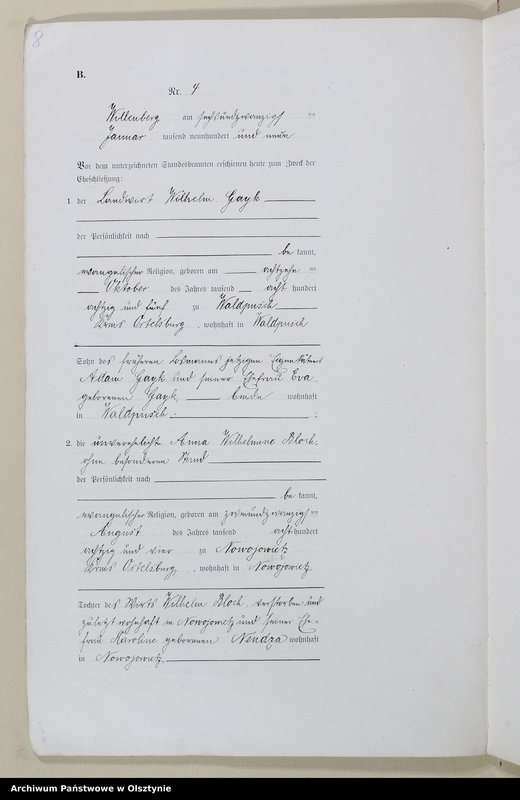 8
B.
Nr. 4
Willenberg am sechsundzwanzigsten
Januar tausend neunhundert und neun
Vor dem unterzeichneten Standesbeamten erschienen heute zum Zweck der
Eheschließung:
1. der Landwirt Wilhelm Gayk
der Persönlichkeit nach
be kannt,
evangelischer Religion, geboren am achtzehn ten
Oktober des Jahres tausend acht hundert
achtzig und fünf zu Waldpusch
Kreis Ortelsburg, wohnhaft in Waldpusch
Sohn des früheren Losmanns jetzigen Eigenkätners
Adam Gayk und seiner Ehefrau Eva
geborenen Gayk, beide wohnhaft
in Waldpusch ;
2. die unverehelichte Anna Wilhelmine Bloch,
ohne besonderen Stand
der Persönlichkeit nach
be kannt,
evangelischer Religion, geboren am zweiundzwanzigsten
August des Jahres tausend acht hundert
achtzig und vier zu Nowojowietz
Kreis Ortelsburg, wohnhaft in Nowojowietz
Tochter des Wirts Wilhelm Bloch, verstorben und
zuletzt wohnhaft in Nowojowietz und seiner Ehe-
frau Karoline geborenen Nendza wohnhaft
in Nowojowietz.
Archiwum Państwowe w Olsztynie